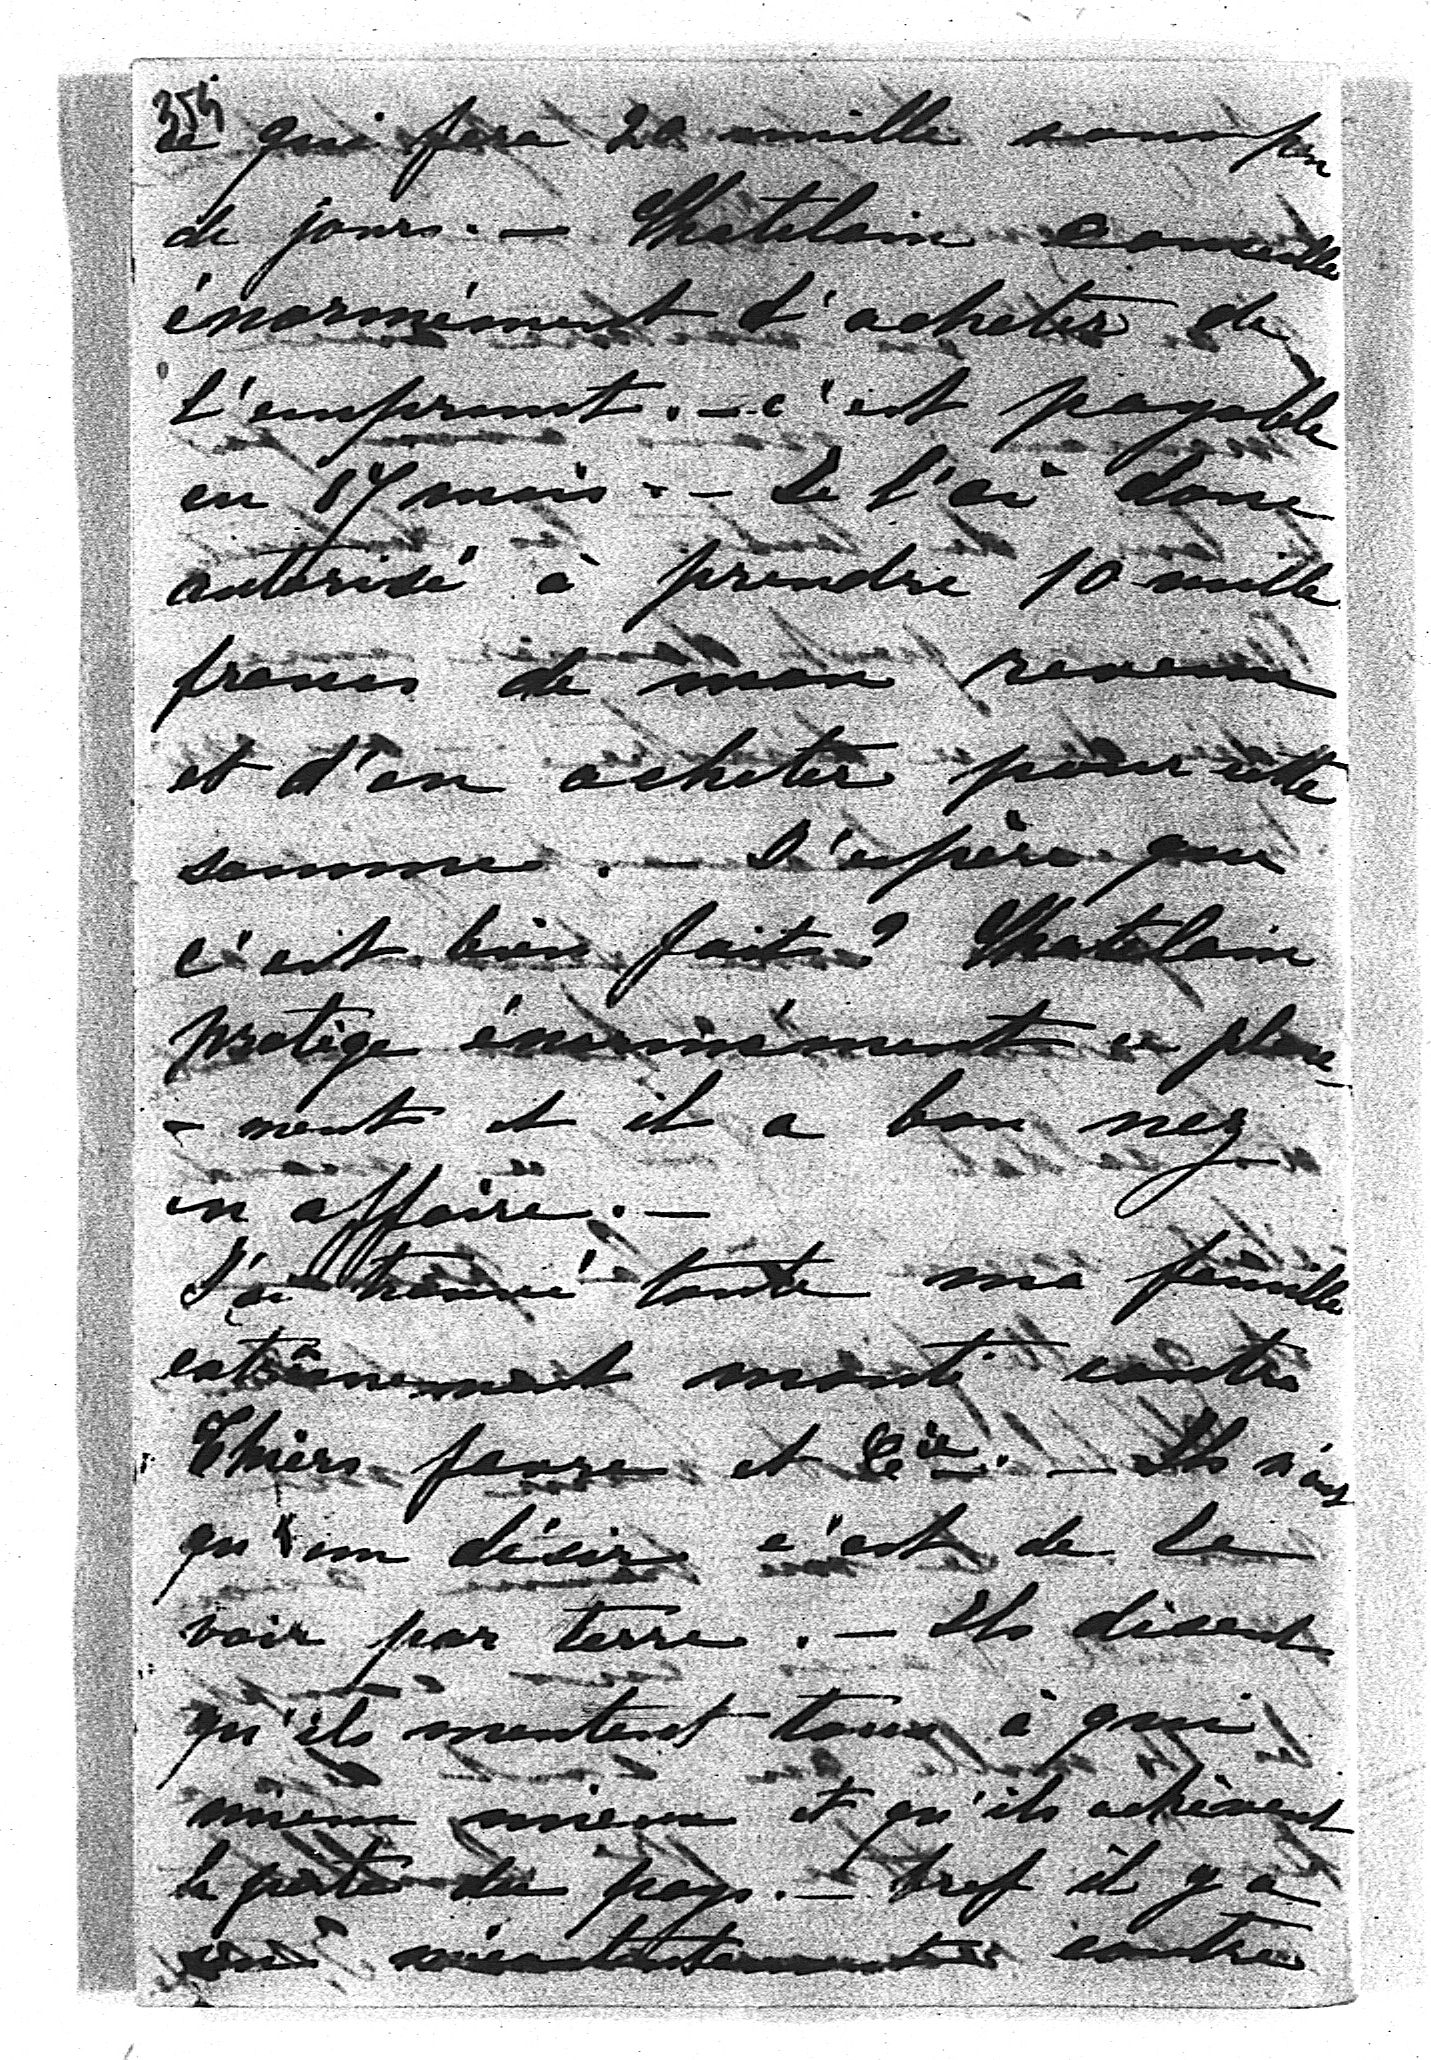 354
ce qui fera 20 mille sous peu
de jours. — Chatelain conseille
énormément d'acheter de
l'emprunt. — c'est payable
en 17 mois. — Je l'ai donc
autorisé à prendre 10 mille
francs de mon revenu
et d'en acheter pour cette
somme. — J'espère que
c'est bien fait? Chatelain
protège énormément ce place-
-ment et il a bon nez
en affaire. —
J'ai trouvé toute ma famille
extrêmement monté contre
Thiers favre et Cie. — Ils n'ont
qu'un désir c'est de le
voir par terre. — Ils disent
qu'ils mentent tous à qui
mieux mieux et qu'ils achèvent
la perte du pays. — bref il y a
un mécontentement contre